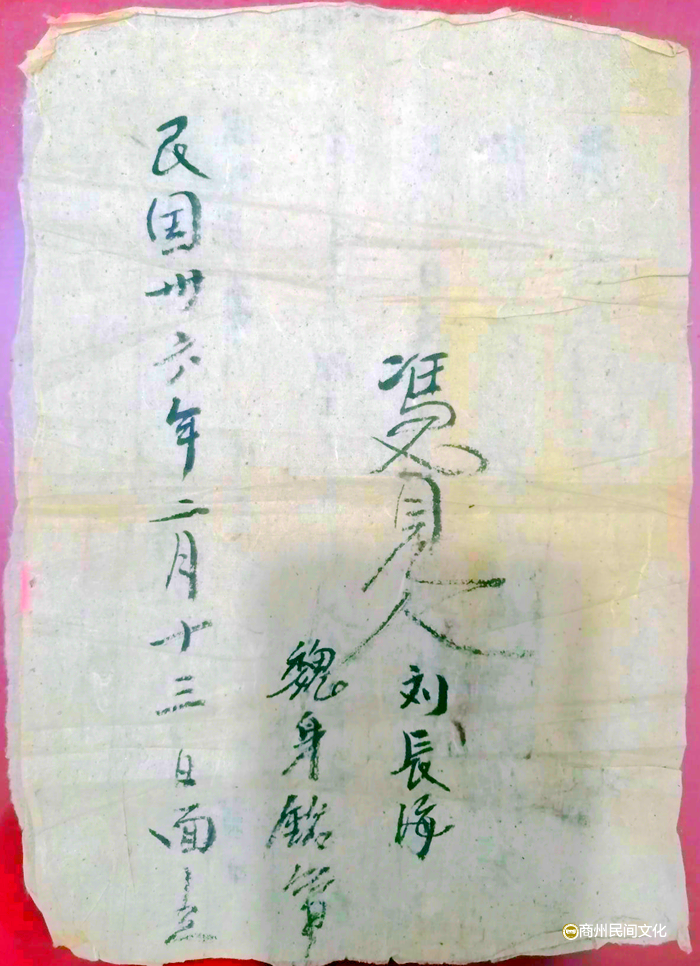 凴見人
刘長海
魏身銘
民国卅六年二月十三日面立
商州民间文化